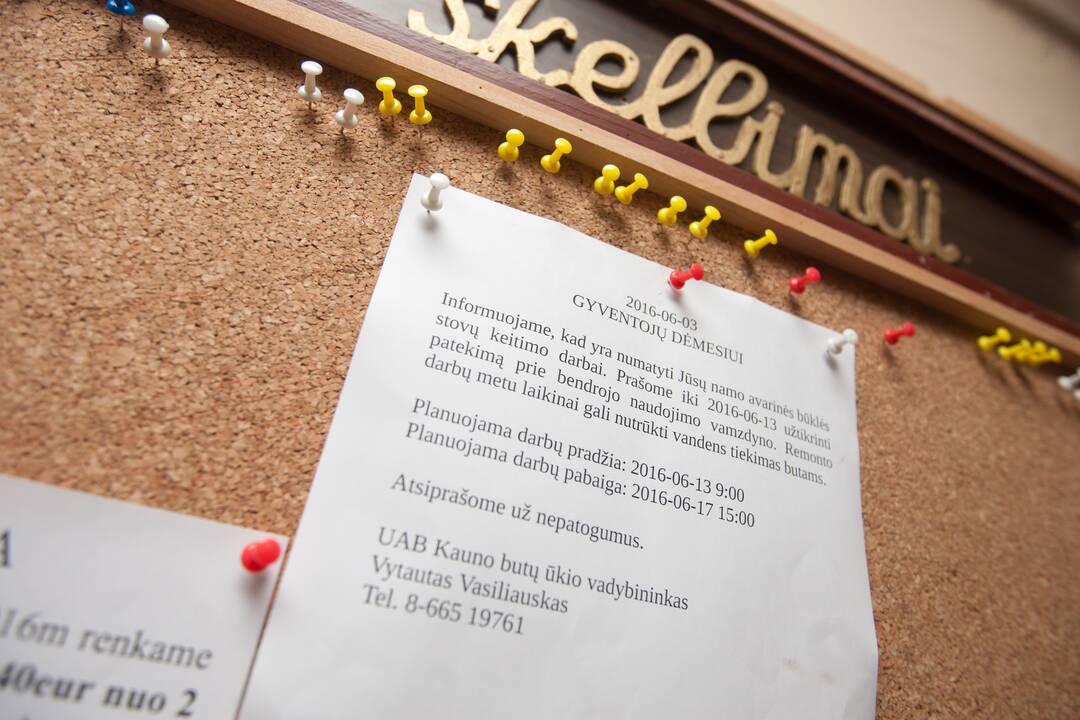 Skelbimai
2016-06-03
GYVENTOJŲ DĖMESIUI
Informuojame, kad yra numatyti Jūsų namo avarinės būklės
stovų keitimo darbai. Prašome iki 2016-06-13 užtikrinti
patekimą prie bendrojo naudojimo vamzdyno. Remonto
darbų metu laikinai gali nutrūkti vandens tiekimas butams.
Planuojama darbų pradžia: 2016-06-13 9:00
Planuojama darbų pabaiga: 2016-06-17 15:00
Atsiprašome už nepatogumus.
UAB Kauno butų ūkio vadybininkas
Vytautas Vasiliauskas
Tel. 8-665 19761
A
016m renkame
40eur nuo 2